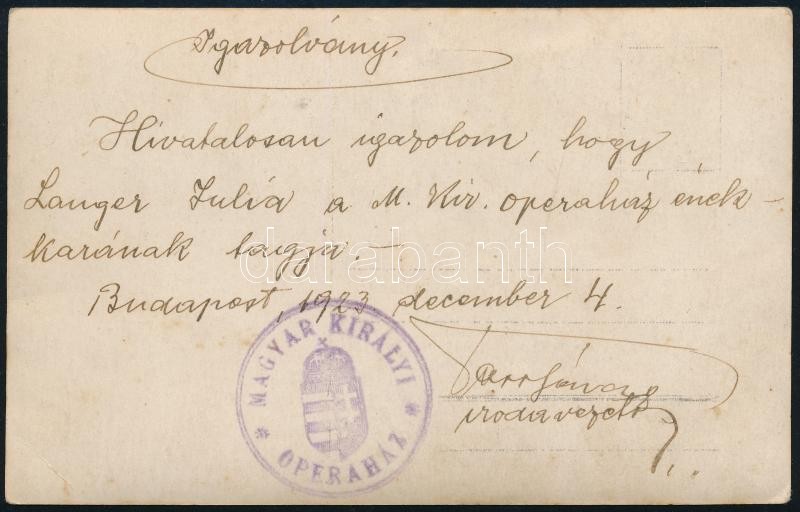 Igazolvány.
Hivatalosan igazolom, hogy
Langer Julia a M. Kir. operaház ének-
karának tagja.-
Budapest, 1923 december 4.
irodavezető
MAGYAR KIRÁLYI
* OPERAHÁZ *
darabanth